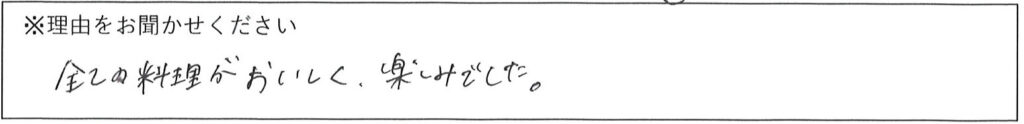 ※理由をお聞かせください
全ての料理がおいしく、楽しみでした。